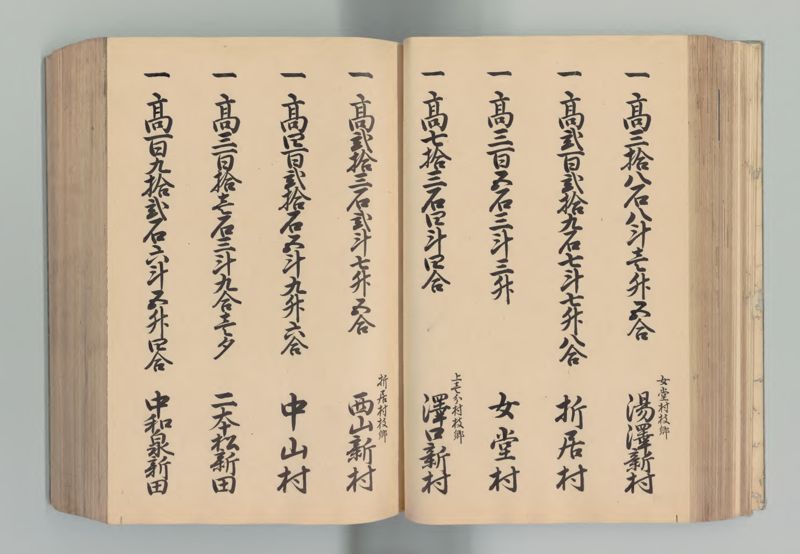 女堂村枝郷
一 高三拾八石八斗壱升五合 湯澤新村
一 高弐百弐拾九石七斗七升八合 折居村
一 高三百五石三斗三升 女堂村
上壱分村枝郷
一 高七拾三石四斗四合 澤口新村
折居村枝郷
一 高弐拾三石弐斗七升五合 西山新村
一 高四百弐拾石五斗九升六合 中山村
一 高三百拾壱石三斗九合壱夕 二本松新田
一 高百九拾弐石六斗五升四合 中和泉新田